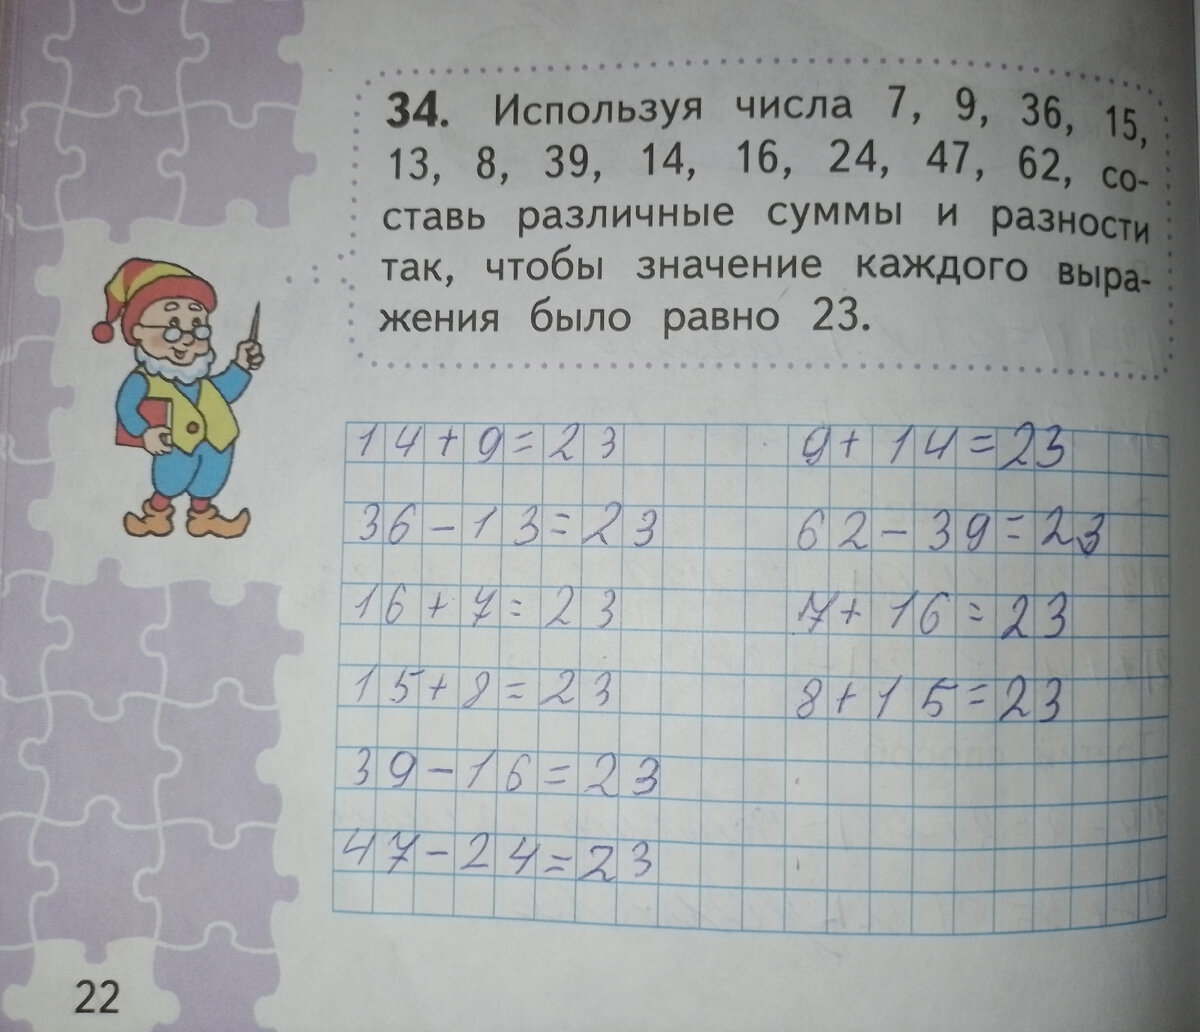 34. Используя числа 7, 9, 36, 15,
13, 8, 39, 14, 16, 24, 47, 62, со-
ставь различные суммы и разности
так, чтобы значение каждого выра-
жения было равно 23.
14+9=23 9+14=23
36-13=23 62-39=23
16+7=23 7+16=23
15+8=23 8+15=23
39-16=23
47-24=23
22